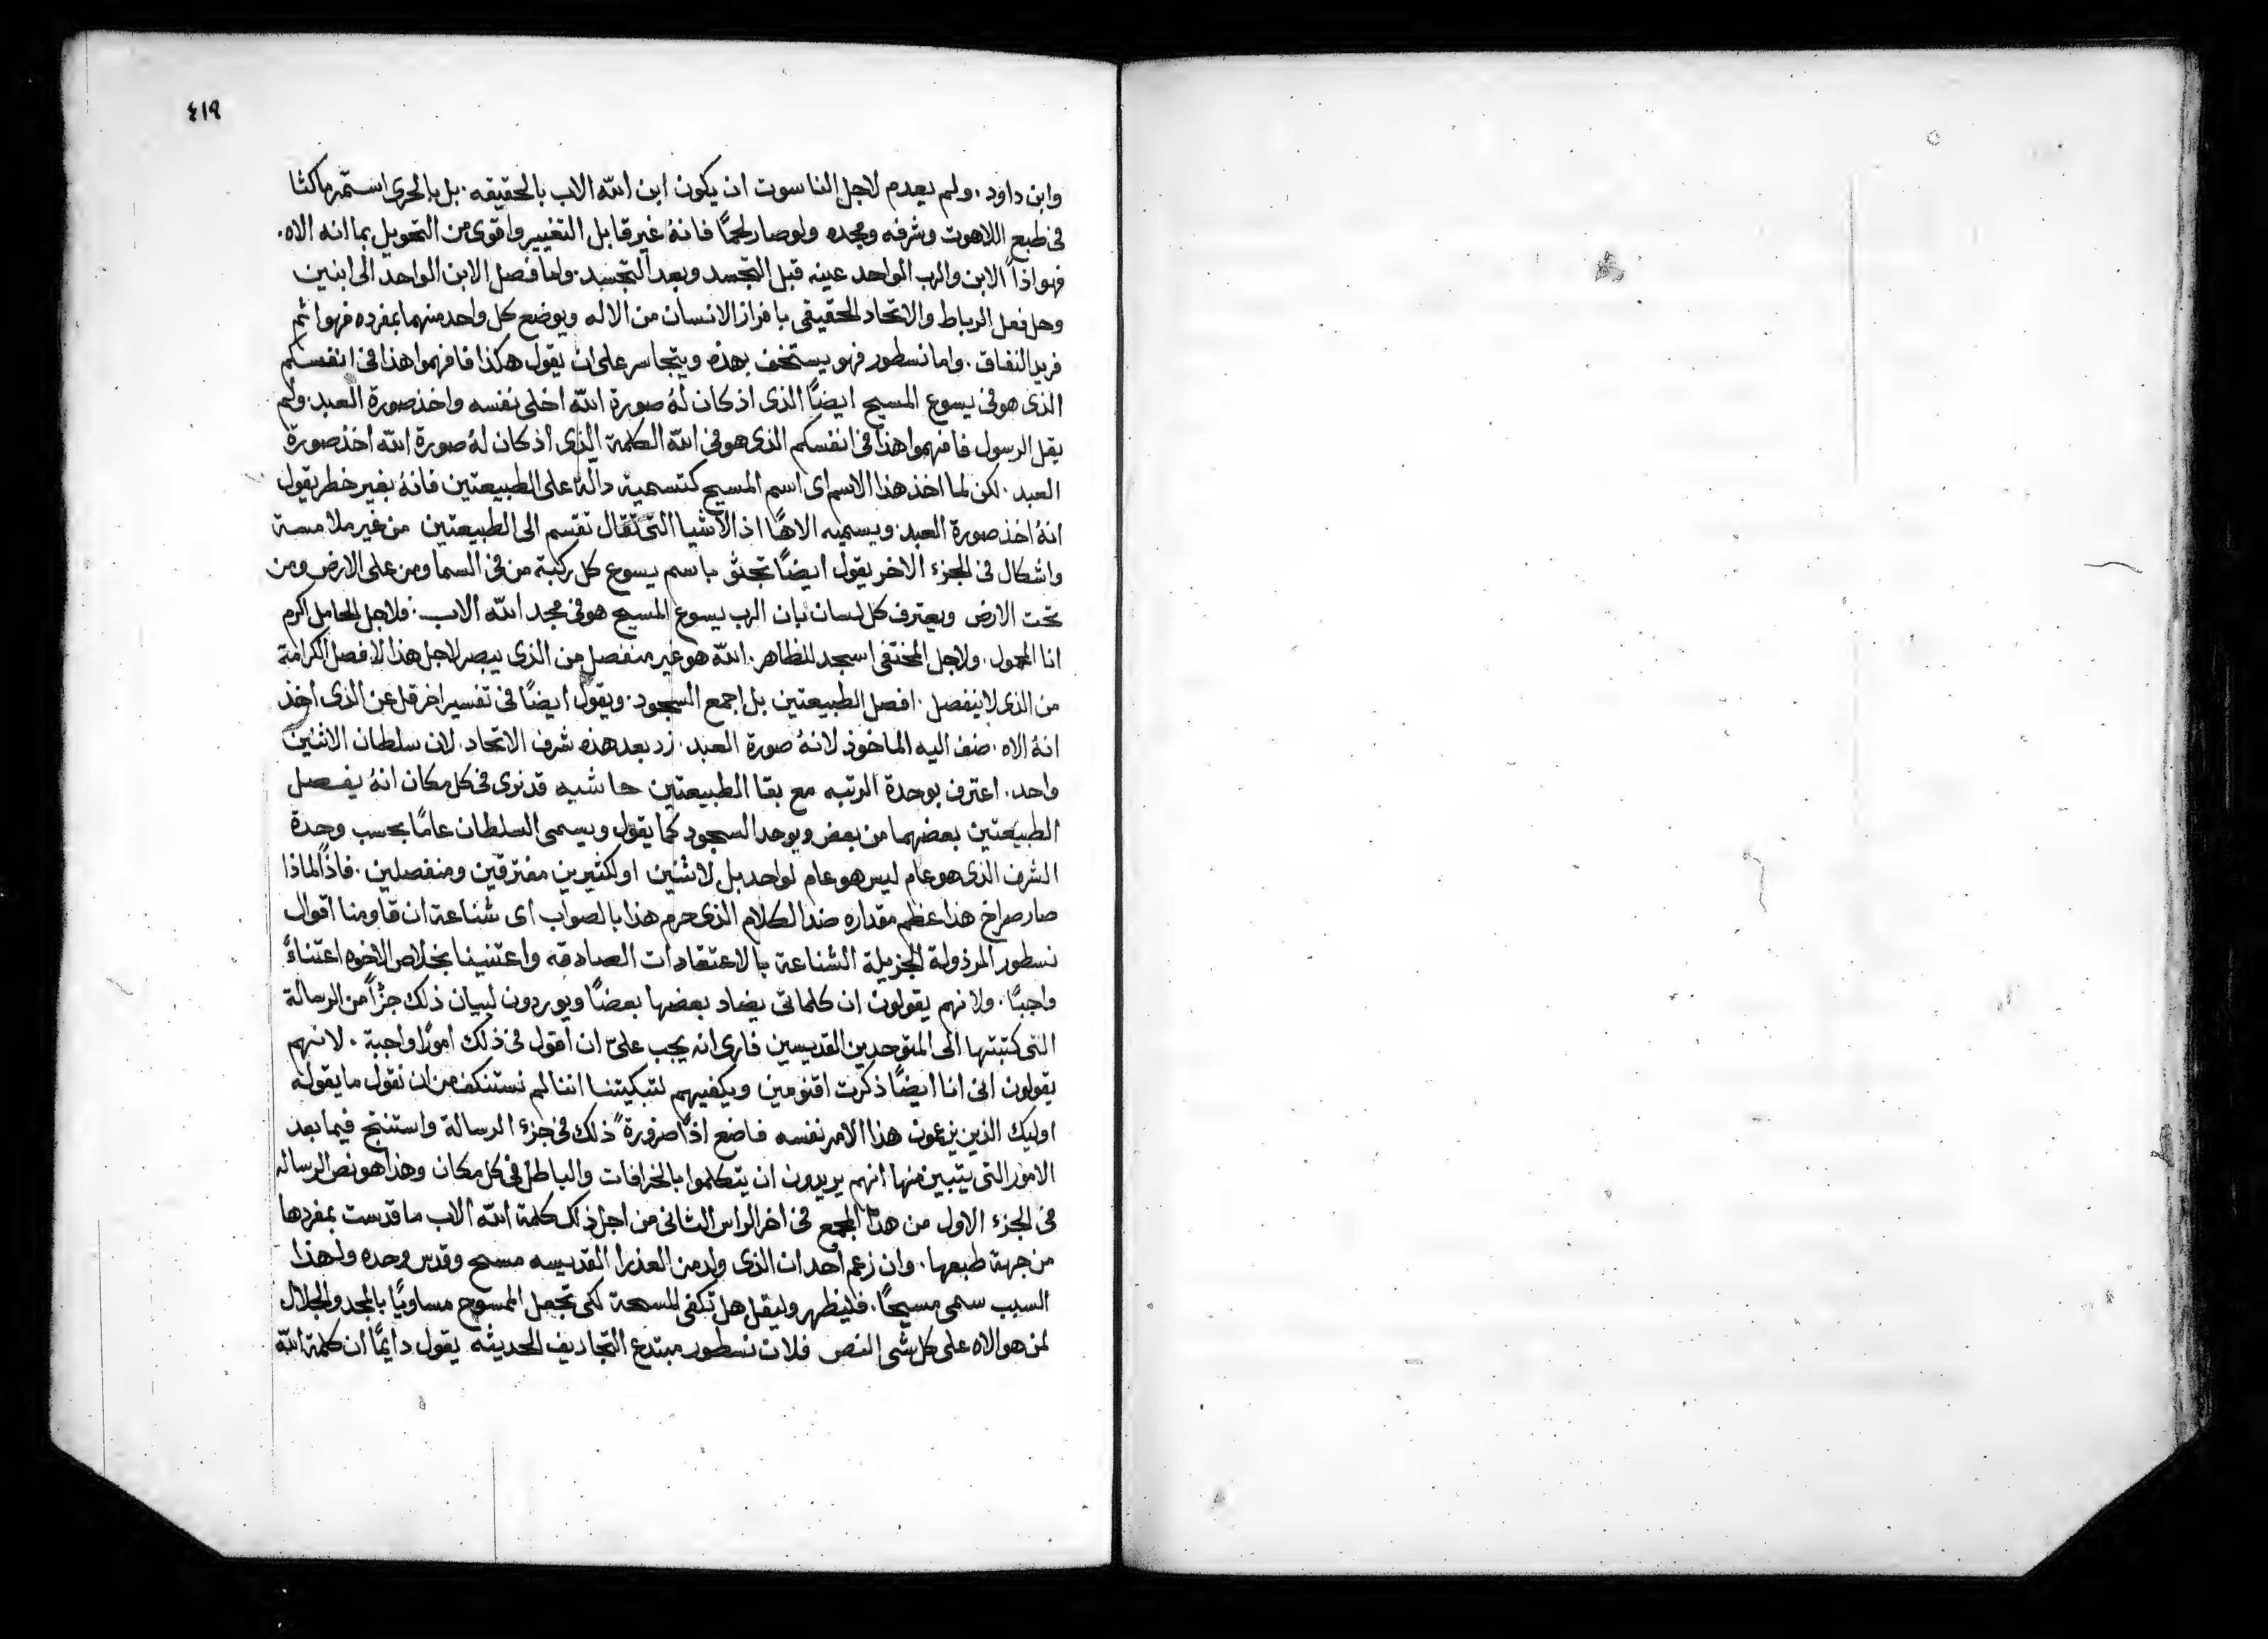 ٤١٩
وابن داود. ولم يعدم لاجل الناسوت ان يكون ابن الله الاب بالحقيقه. بل بالحرى استمر ماكثا
فى طبع اللاهوت وشرفه ومجده ولو صار لحمًا فانهُ غير قابل التغيير واقوى من التحويل بما انه الاه.
فهو اذاً الابن والرب الواحد عينه قبل التجسد وبعد التجسد. واما فصل الابن الواحد الى ابنين
وحل فعل الرباط والاتحاد الحقيقى بافراز الانسان من الاله ويوضع كل واحد منهما بمفرده فهو اثم
فريد النفاق. واما نسطور فهو يستخف بهذه ويتجاسر على ان يقول هكذا فافهموا هذا فى انفسكم
الذى هو فى يسوع المسيح ايضًا الذى اذ كان لهُ صورة الله اخلى نفسه واخذ صورة العبد. ولم
يقل الرسول فافهموا هذا فى انفسكم الذى هو فى الله الكلمة الذى اذ كان لهُ صورة الله اخذ صورة
العبد. لكن لما اخذ هذا الاسم اى اسم المسيح كتسمية دالة على الطبيعتين فانهُ بغير خطر يقول
انهُ اخذ صورة العبد. ويسميه الاهًا اذ الاشيا التى تقال تقسم الى الطبيعتين من غير ملامسة
واشكال فى الجزء الاخر يقول ايضًا تجثو باسم يسوع كل ركبة من فى السما ومن على الارض ومن
تحت الارض ويعترف كل لسان بان الرب يسوع المسيح هو فى مجد الله الاب. فلاجل الحامل اكرم
انا المحمول. ولاجل المختفى اسجد للظاهر. الله هو غير منفصل من الذى يبصر لاجل هذا لا افصل الكرامة
من الذى لا ينفصل. افصل الطبيعتين بل اجمع السجود. ويقول ايضًا فى تفسير اخر قل عن الذى اخذ
انهُ الاه. ضف اليه الماخوذ لانهُ صورة العبد. زد بعد هذه شرف الاتحاد. لان سلطان الاثنين
واحد. اعترف بوحدة الرتبه مع بقا الطبيعتين حاشيه قد نرى فى كل مكان انهُ يفصل
الطبيعتين بعضهما من بعض ويوحد السجود كما يقول ويسمى السلطان عامًا بحسب وحدة
الشرف الذى هو عام ليس هو عام لواحد بل لاثنين او لكثيرين مفترقين ومنفصلين. فاذًا لماذا
صار صراخ هذا عظم مقداره ضد الكلام الذى حرم هذا بالصواب اى شناعة ان قاومنا اقوال
نسطور المرذولة الجزيلة الشناعة بالاعتقادات الصادقه واعتنينا بخلاص الاخوه اعتناءً
واجبًا. ولانهم يقولون ان كلماتى يضاد بعضها بعضًا ويوردون لبيان ذلك جزًا من الرسالة
التى كتبتها الى المتوحدين القديسين فارى انه يجب علىّ ان اقول فى ذلك امورًا واجبة. لانهم
يقولون انى انا ايضًا ذكرت اقنومين ويكفيهم لتبكيتنا اننا لم نستنكف من ان نقول ما يقوله
اوليك الذين يزعمون هذا الامر نفسه فاضع اذًا ضرورةً ذلك فى جزء الرسالة واستنتج فيما بعد
الامور التى يتبين منها انهم يريدون ان يتكلموا بالخرافات والباطل فى كل مكان وهذا هو نص الرساله
فى الجزء الاول من هذا المجمع فى اخر الراس الثانى من اجل ذلك كلمة الله الاب ما قدست بمفردها
من جهة طبعها. وان زعم احد ان الذى ولد من العذرا القديسه مسح وقدس وحده ولهذا
السبب سمى مسيحًا. فليظهر وليقل هل تكفى المسحة لكى تجعل الممسوح مساويًا بالمجد والجلال
لمن هو الاه على كل شى النص فلان نسطور مبتدع التجاديف الحديثه يقول دايمًا ان كلمة الله